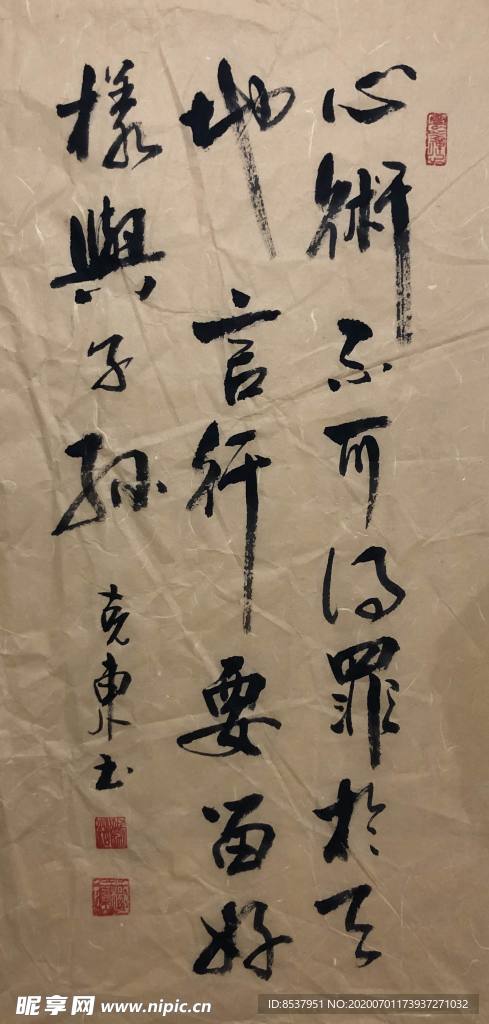 心術不可得罪於天
地言行要留好
樣與子孫
克東书
昵享网 www.nipic.cn
ID:8537951 NO:20200701173937271032